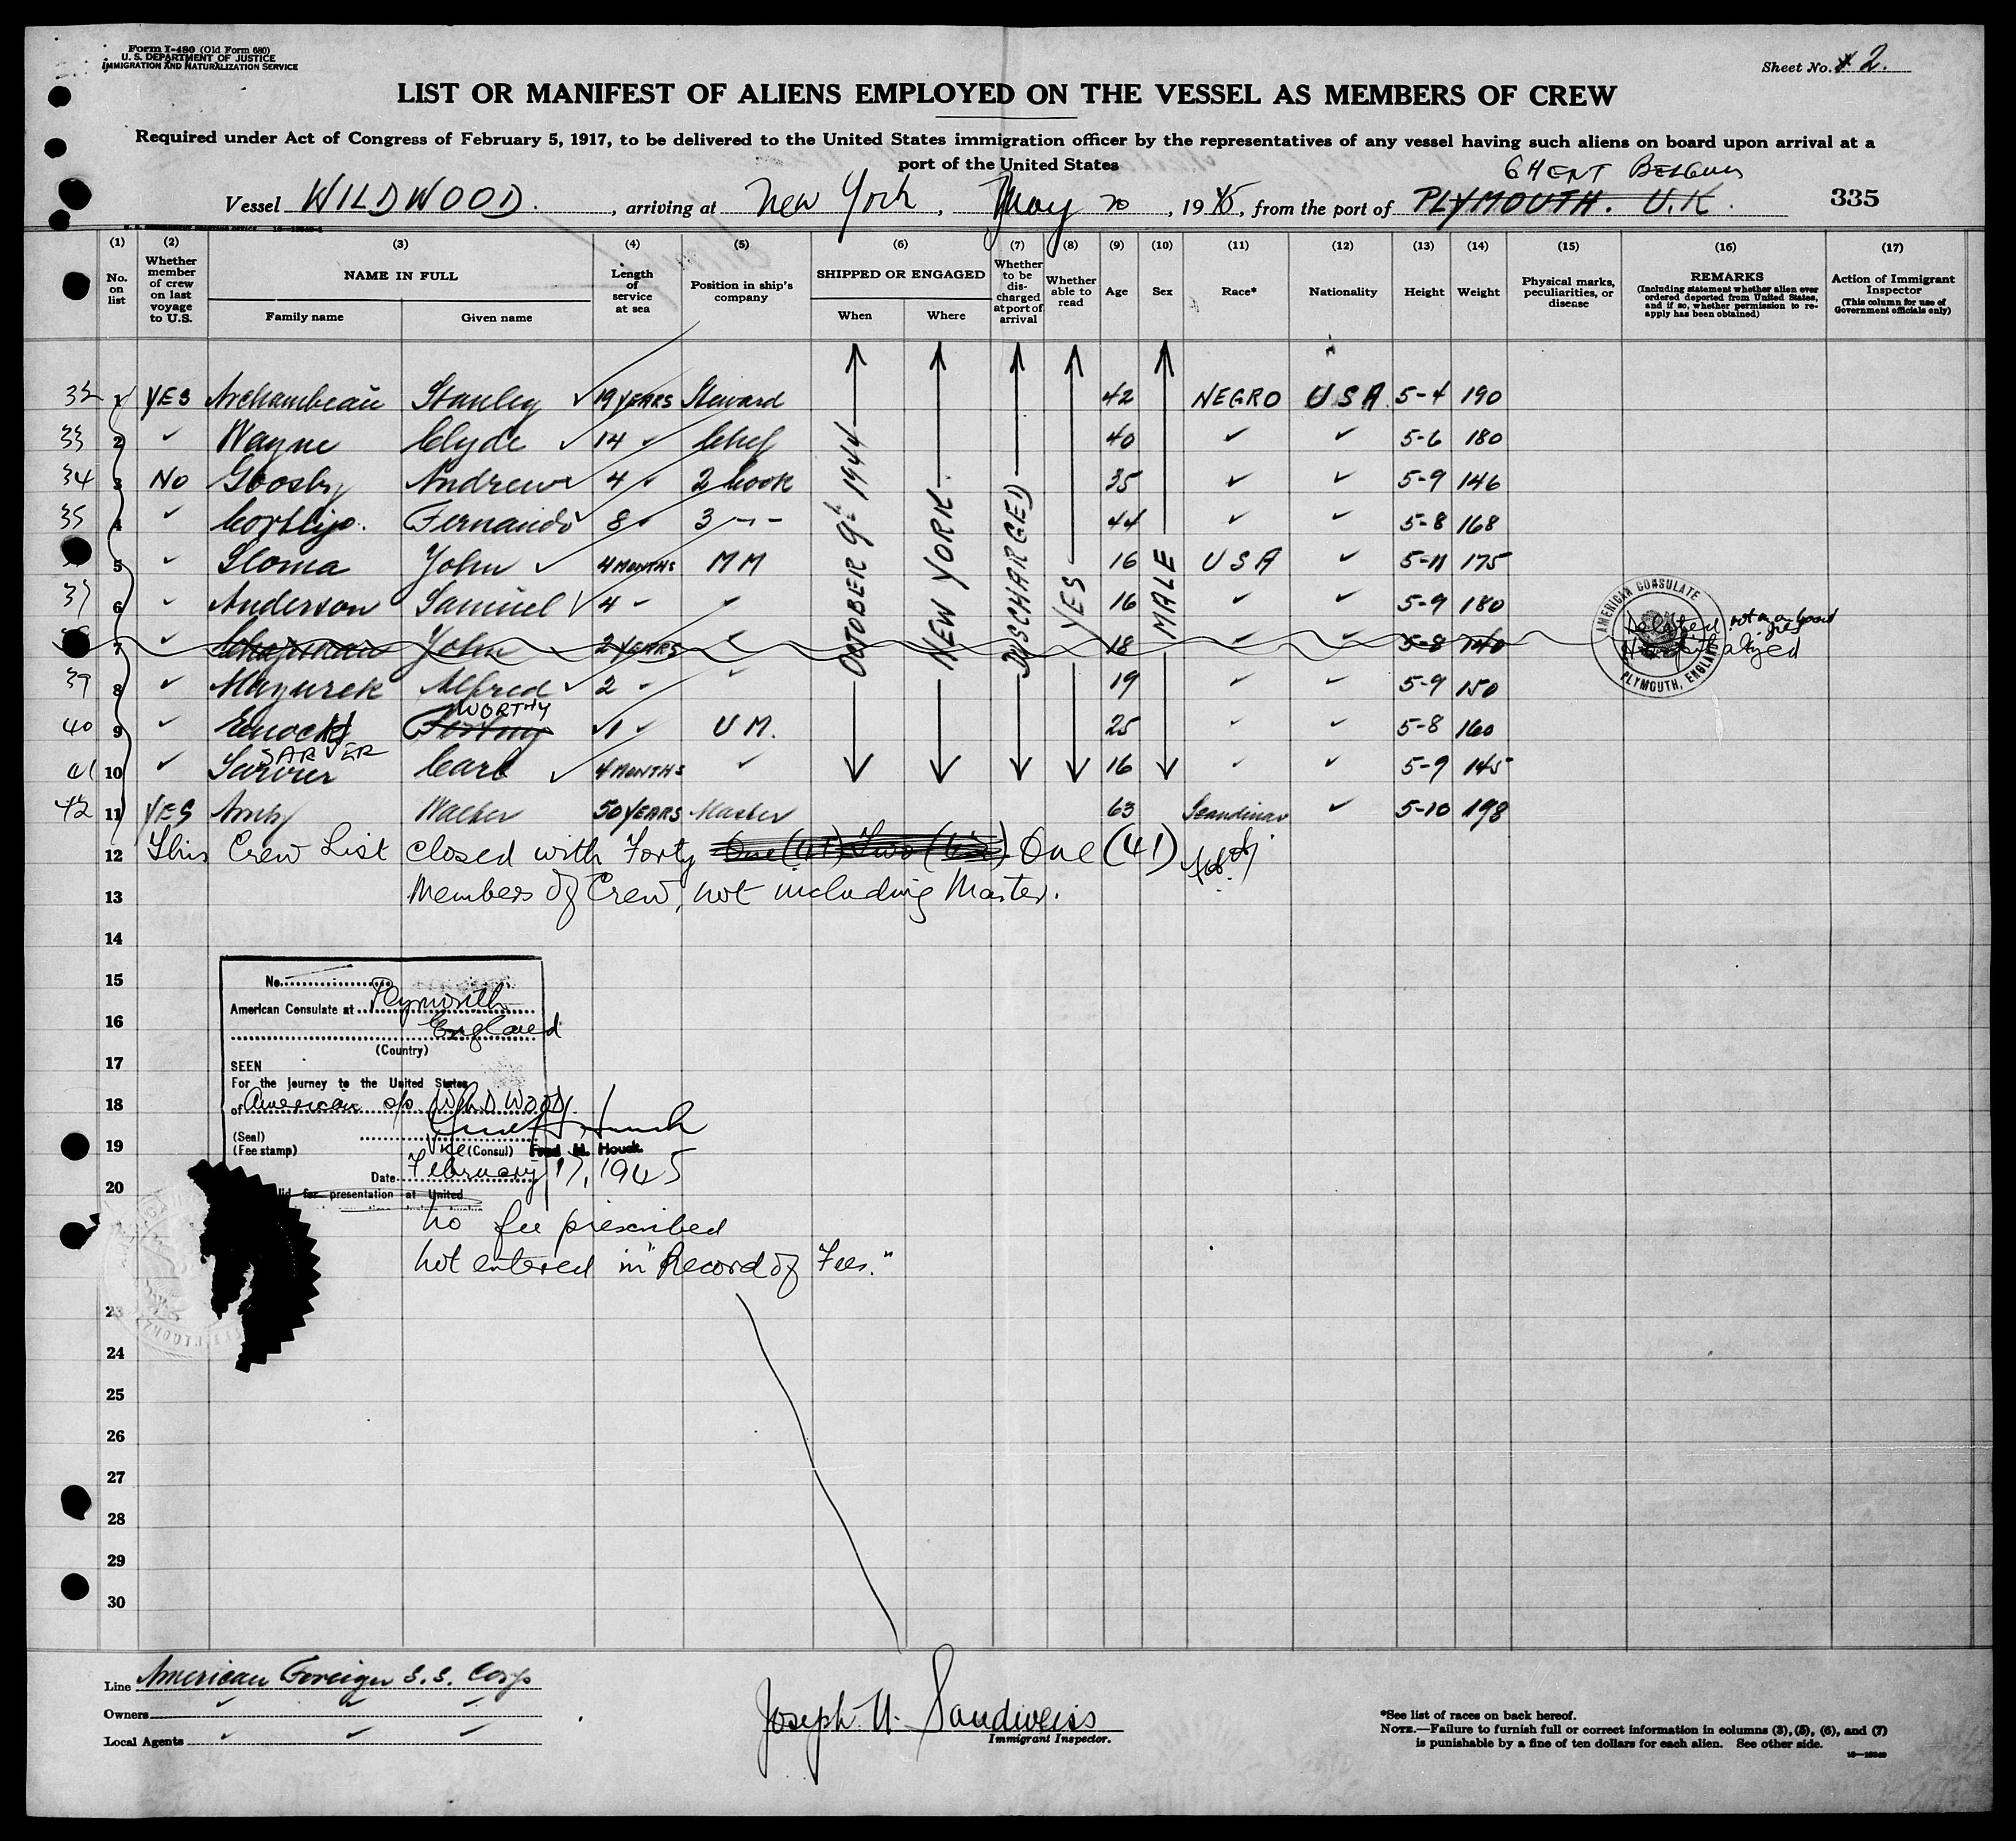 Form I-480 (Old Form 680)
U. S. DEPARTMENT OF JUSTICE
IMMIGRATION AND NATURALIZATION SERVICE
Sheet No. 2.
LIST OR MANIFEST OF ALIENS EMPLOYED ON THE VESSEL AS MEMBERS OF CREW
Required under Act of Congress of February 5, 1917, to be delivered to the United States immigration officer by the representatives of any vessel having such aliens on board upon arrival at a
port of the United States
GHENT BELGIUM
Vessel WILDWOOD. , arriving at New York , May 20 , 1945, from the port of PLYMOUTH. U.K. 335
(1) (2) (3) (4) (5) (6) (7) (8) (9) (10) (11) (12) (13) (14) (15) (16) (17)
No. on list
Whether member of crew on last voyage to U.S.
NAME IN FULL
Family name Given name
Length of service at sea
Position in ship's company
SHIPPED OR ENGAGED
When Where
Whether to be discharged at port of arrival
Whether able to read
Age
Sex
Race*
Nationality
Height
Weight
Physical marks, peculiarities, or disease
REMARKS
(Including statement whether alien ever ordered deported from United States, and if so, whether permission to reapply has been obtained)
Action of Immigrant Inspector
(This column for use of Government officials only)
OCTOBER 9th 1944
NEW YORK
DISCHARGED
YES
MALE
32 1 YES Archambeau Stanley ✓ 19 YEARS Steward 42 NEGRO USA 5-4 190
33 2 ✓ Wayne Clyde ✓ 14 ✓ Chef 40 ✓ ✓ 5-6 180
34 3 NO Goosby Andrew ✓ 4 ✓ 2 Cook 35 ✓ ✓ 5-9 146
35 4 ✓ Fernando ✓ 8 ✓ 3 -- 44 ✓ ✓ 5-8 168
5 ✓ Sloma John ✓ 4 MONTHS MM 16 USA ✓ 5-11 175
37 6 ✓ Anderson Samuel ✓ 4 - ✓ 16 ✓ ✓ 5-9 180
7 ✓ Chapman John 2 YEARS ✓ 18 ✓ ✓ 5-8 140 not on a board
Hospitalized
AMERICAN CONSULATE
PLYMOUTH, ENGLAND
39 8 ✓ Mazurek Alfred ✓ 2 - 19 ✓ ✓ 5-9 150
WORTHY
40 9 ✓ Enocks ✓ 1 ✓ U M. 25 ✓ ✓ 5-8 160
SARVER
41 10 ✓ Carl ✓ 4 MONTHS ✓ 16 ✓ ✓ 5-9 145
42 11 YES Walter 50 YEARS Master 63 Scandinav ✓ 5-10 198
12 This Crew List closed with Forty One (41)
13 Members of Crew, not including Master.
14
15
16
17
18
19
20
23
24
25
26
27
28
29
30
No.
American Consulate at Plymouth
England
(Country)
SEEN
For the journey to the United States
of American s/s WILDWOOD
(Seal)
(Fee stamp)
Vice (Consul) Fred H. Houck
Date February 17, 1945
for presentation at United
No fee prescribed
Not entered in "Record of Fees."
Line American Foreign S.S. Corp
Owners ✓ ✓ ✓
Local Agents ✓ ✓ ✓
Joseph U. Sandweiss
Immigrant Inspector.
*See list of races on back hereof.
NOTE.—Failure to furnish full or correct information in columns (3), (5), (6), and (7)
is punishable by a fine of ten dollars for each alien. See other side.